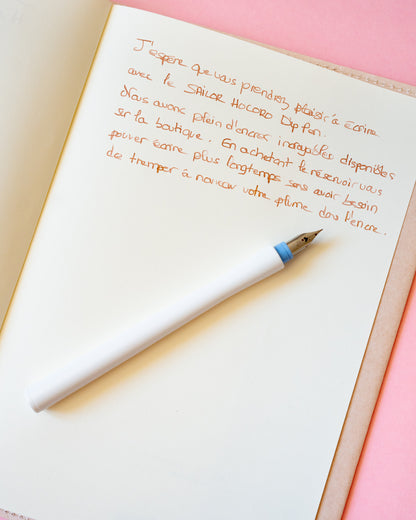 J'espère que vous prendrez plaisir à écrire
avec le SAILOR HOCORO Dip Pen.
Nous avons plein d'encres incroyables disponibles
sur la boutique. En achetant le réservoir vous
pouvez écrire plus longtemps sans avoir besoin
de tremper à nouveau votre plume dans l'encre.